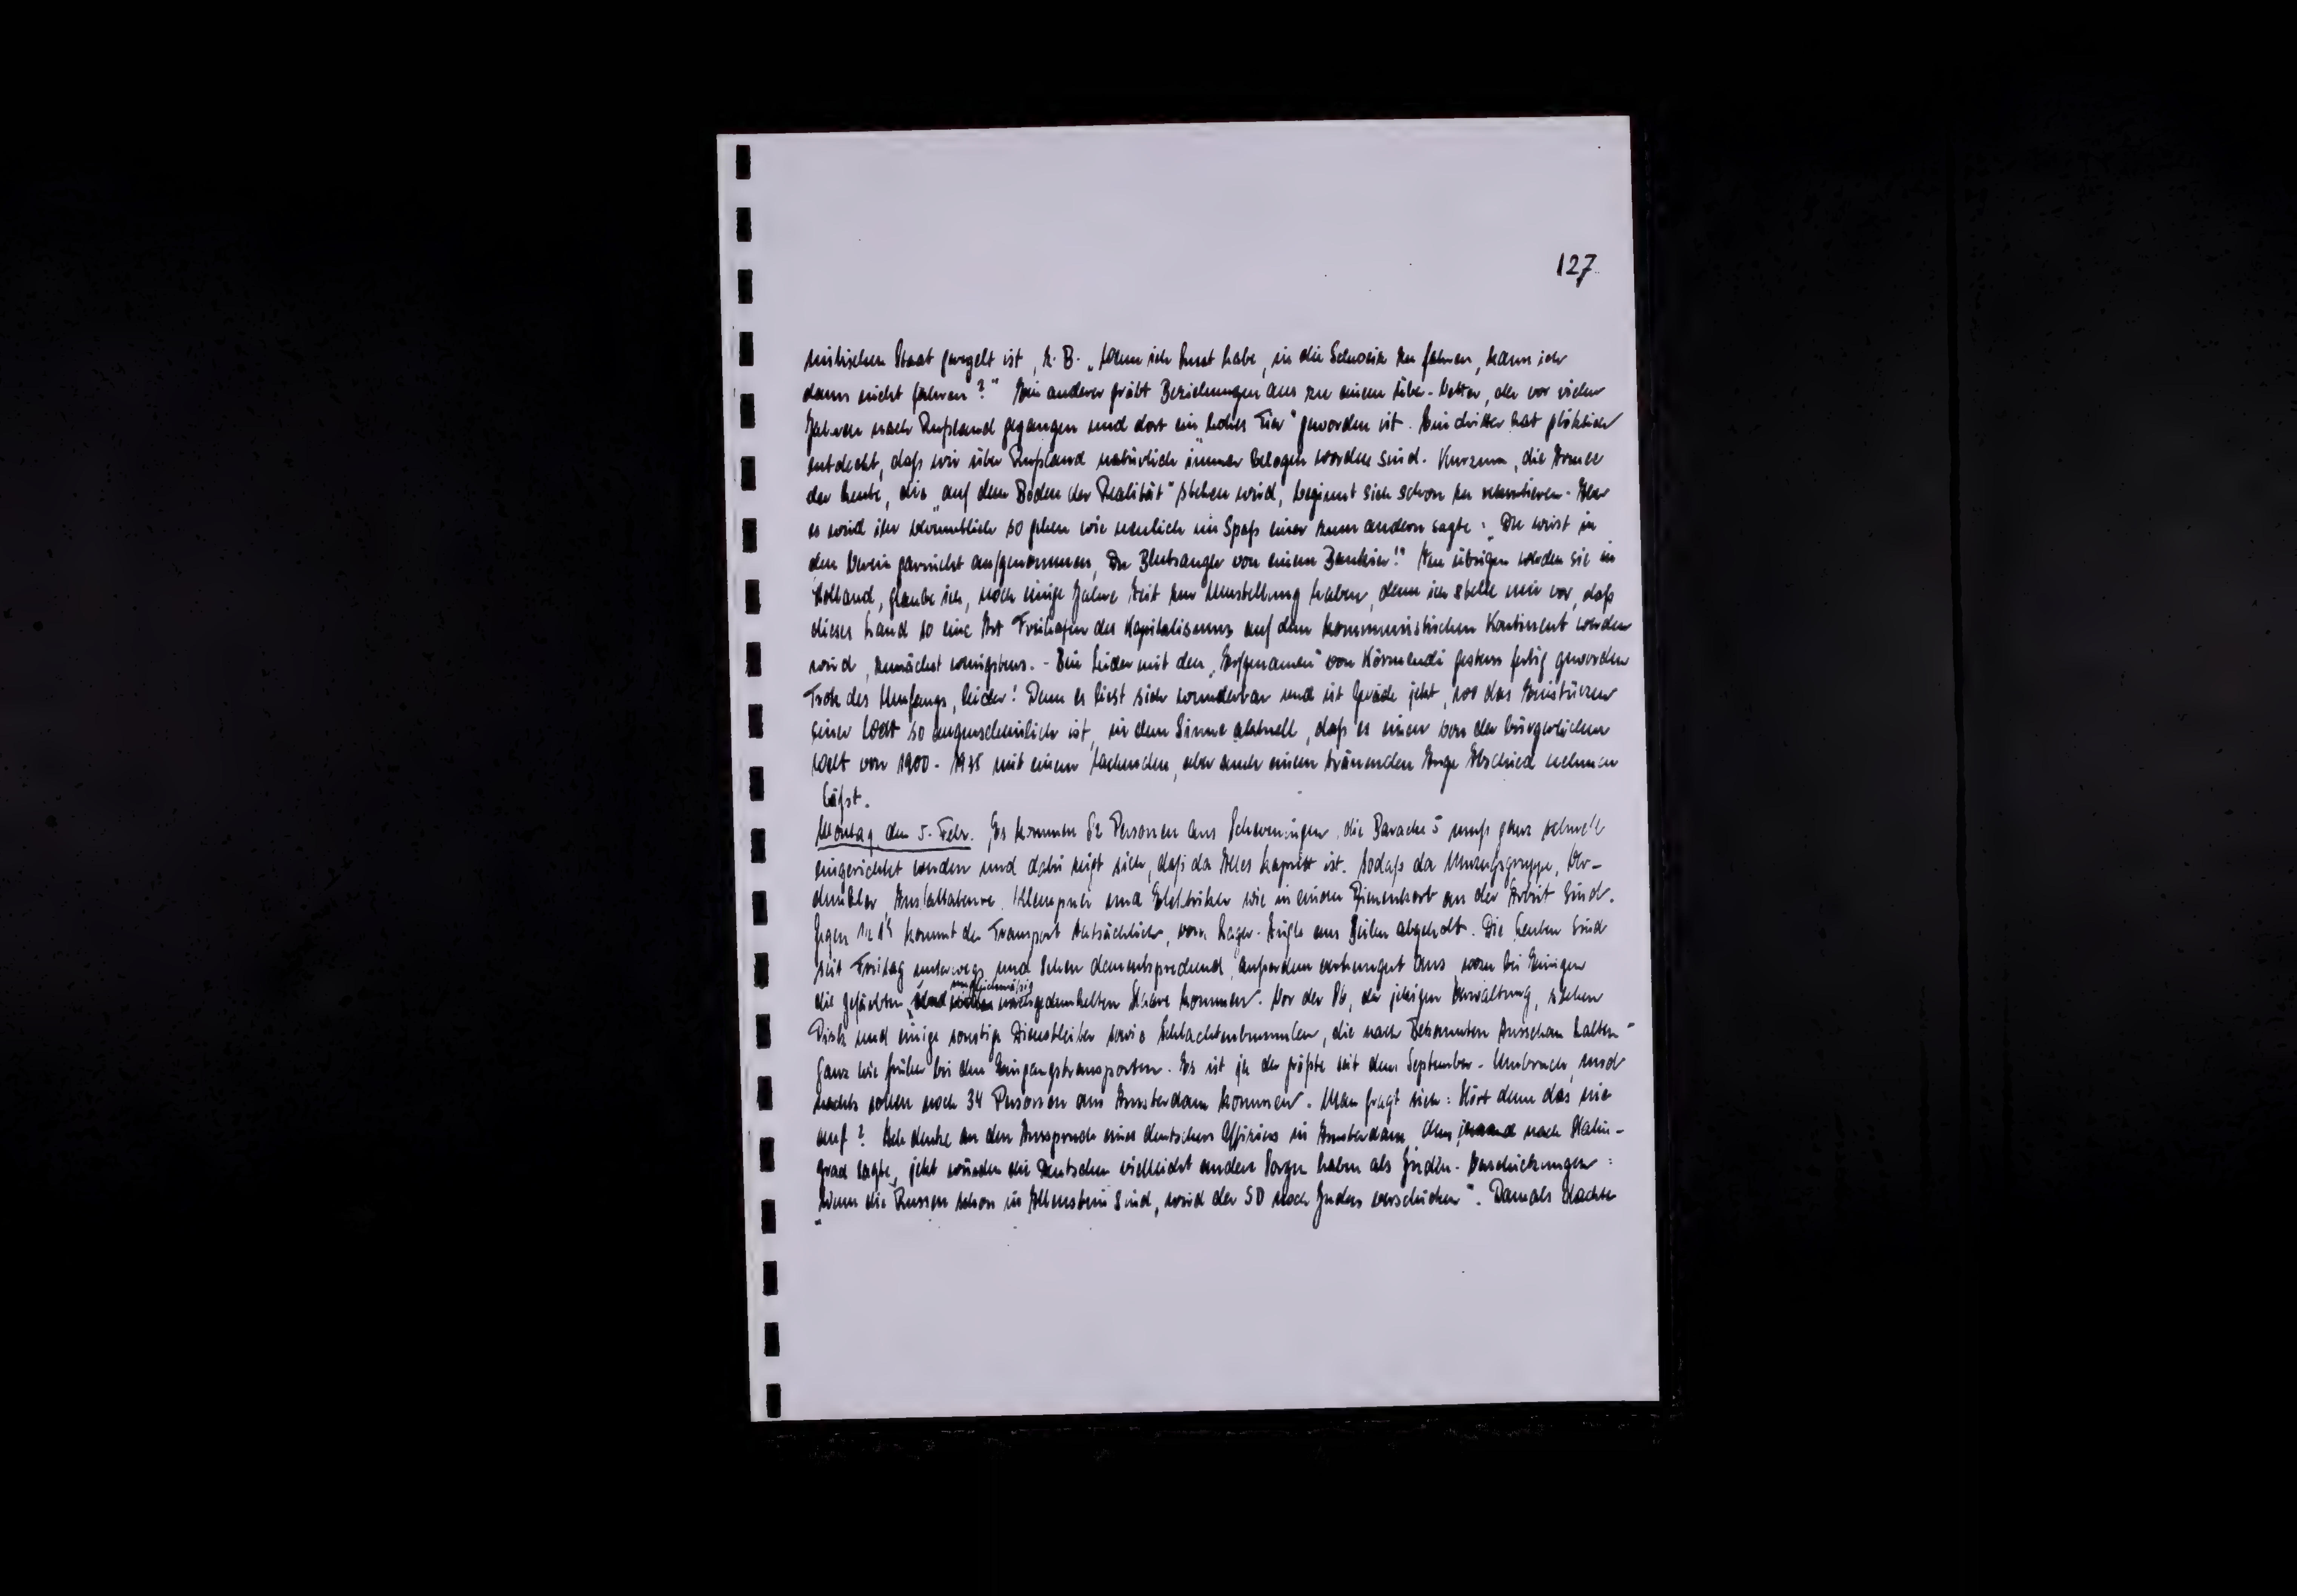 127
nistischen Staat geregelt ist, z. B. „Wenn ich Lust habe, in die Schweiz zu fahren, kann ich
dann nicht fahren?" Ein anderer gräbt Beziehungen aus zu einem Vetter, der vor vielen
Jahren nach Rußland gegangen und dort ein „hohes Tier" geworden ist. Ein dritter hat plötzlich
entdeckt, daß wir über Rußland natürlich immer belogen worden sind. Kurzum, die Armee
der Leute, die „auf dem Boden der Realität" stehen wird, beginnt sich schon zu rekrutieren. Aber
es wird ihr vermutlich so gehen wie neulich im Spaß einer zum andern sagte: „Du wirst in
den Verein garnicht aufgenommen, Du Blutsauger von einem Bankier!" Im übrigen werden sie in
Holland, glaube ich, noch einige Jahre Zeit zur Umstellung haben, denn ich stelle mir vor, daß
dieses Land so eine Art Freihafen des Kapitalismus auf dem kommunistischen Kontinent werden
wird, zunächst wenigstens. - Bin leider mit den von Körmendi gestern fertig geworden
Trotz des Umfangs, leider! Denn es liest sich wunderbar und ist gerade jetzt, wo das Einstürzen
einer Welt so augenscheinlich ist, in dem Sinne aktuell, daß es einen von der bürgerlichen
Welt von 1900 - 1935 mit einem lachenden, aber auch einem tränenden Auge Abschied nehmen
läßt.
Montag, den 5. Febr. Es kommen 52 Personen aus Scheveningen, die Baracke 5 muß ganz schnell
eingerichtet werden und dabei zeigt sich, daß da Alles kaputt ist. sodaß da Umzugsgruppe, Ver-
dunkler, Installateure, Klempner und Elektriker wie in einem Bienenkorb an der Arbeit sind.
Gegen 1/2 kommt der Transport tatsächlich, vom Lager-Zügle aus Beilen abgeholt. Die Leuten sind
seit Freitag unterwegs und sehen dementsprechend, außerdem verhungert aus, wozu bei Einigen
die gefärbten, ungleichmäßig nachgedunkelten Haare kommen. Vor der 86, der jetzigen Verwaltung, stehen
und einige sonstige Dienstleiter sowie Schlachtenbummler, die nach Bekannten Ausschau halten -
Ganz wie früher bei den Eingangstransporten. Es ist ja der größte seit dem September-Umbruch, und
nachts sollen noch 34 Personen aus Amsterdam kommen. Man fragt sich: Hört denn das nie
auf? Ich denke an den Ausspruch eines deutschen Offiziers in Amsterdam, dem jemand nach Stalin-
grad sagte, jetzt würden die Deutschen vielleicht andere Sorgen haben als Juden-Verschickungen:
„Wenn die Russen schon in Allenstein sind, wird der SD noch Juden verschicken". Damals lachte